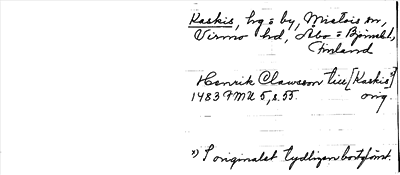 Kaskis, hg o by, Mietois sn,
Virmo hd, Åbo o Bjnebl,
Finland
Henrik Clawsson till [Kaskis x)]
1483 FMU 5, s. 55. orig.
x) I originalet tydligen bortglömt.